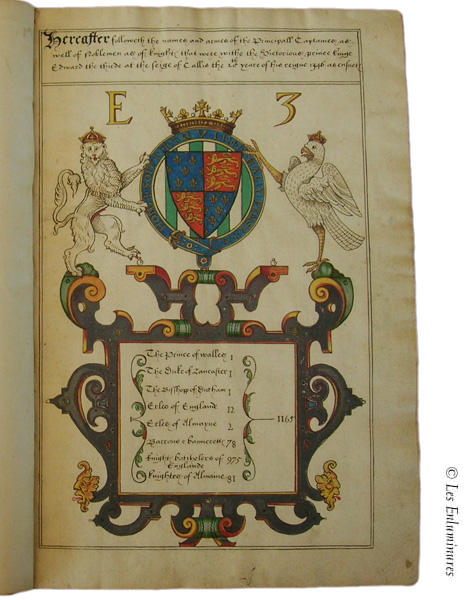 Hereafter followeth the names and armes of the Principall Captaines as
well of Noblemen as of knights that were withe the Victorious prince kinge
Edward the thirde at the seige of Callis the 20 yeare of his reigne 1346 as ensueth
E 3
HONI SOIT QUI MAL Y PENSE
The Prince of walles 1
The Duke of Lancaster 1
The Bisshopp of Durham 1
Erles of Englande 12
Erles of Almayne 2
Barrons & bannerette 78
knight batchelers of 975
Englande
knightes of Almaine 81
1165
© Les Enluminures